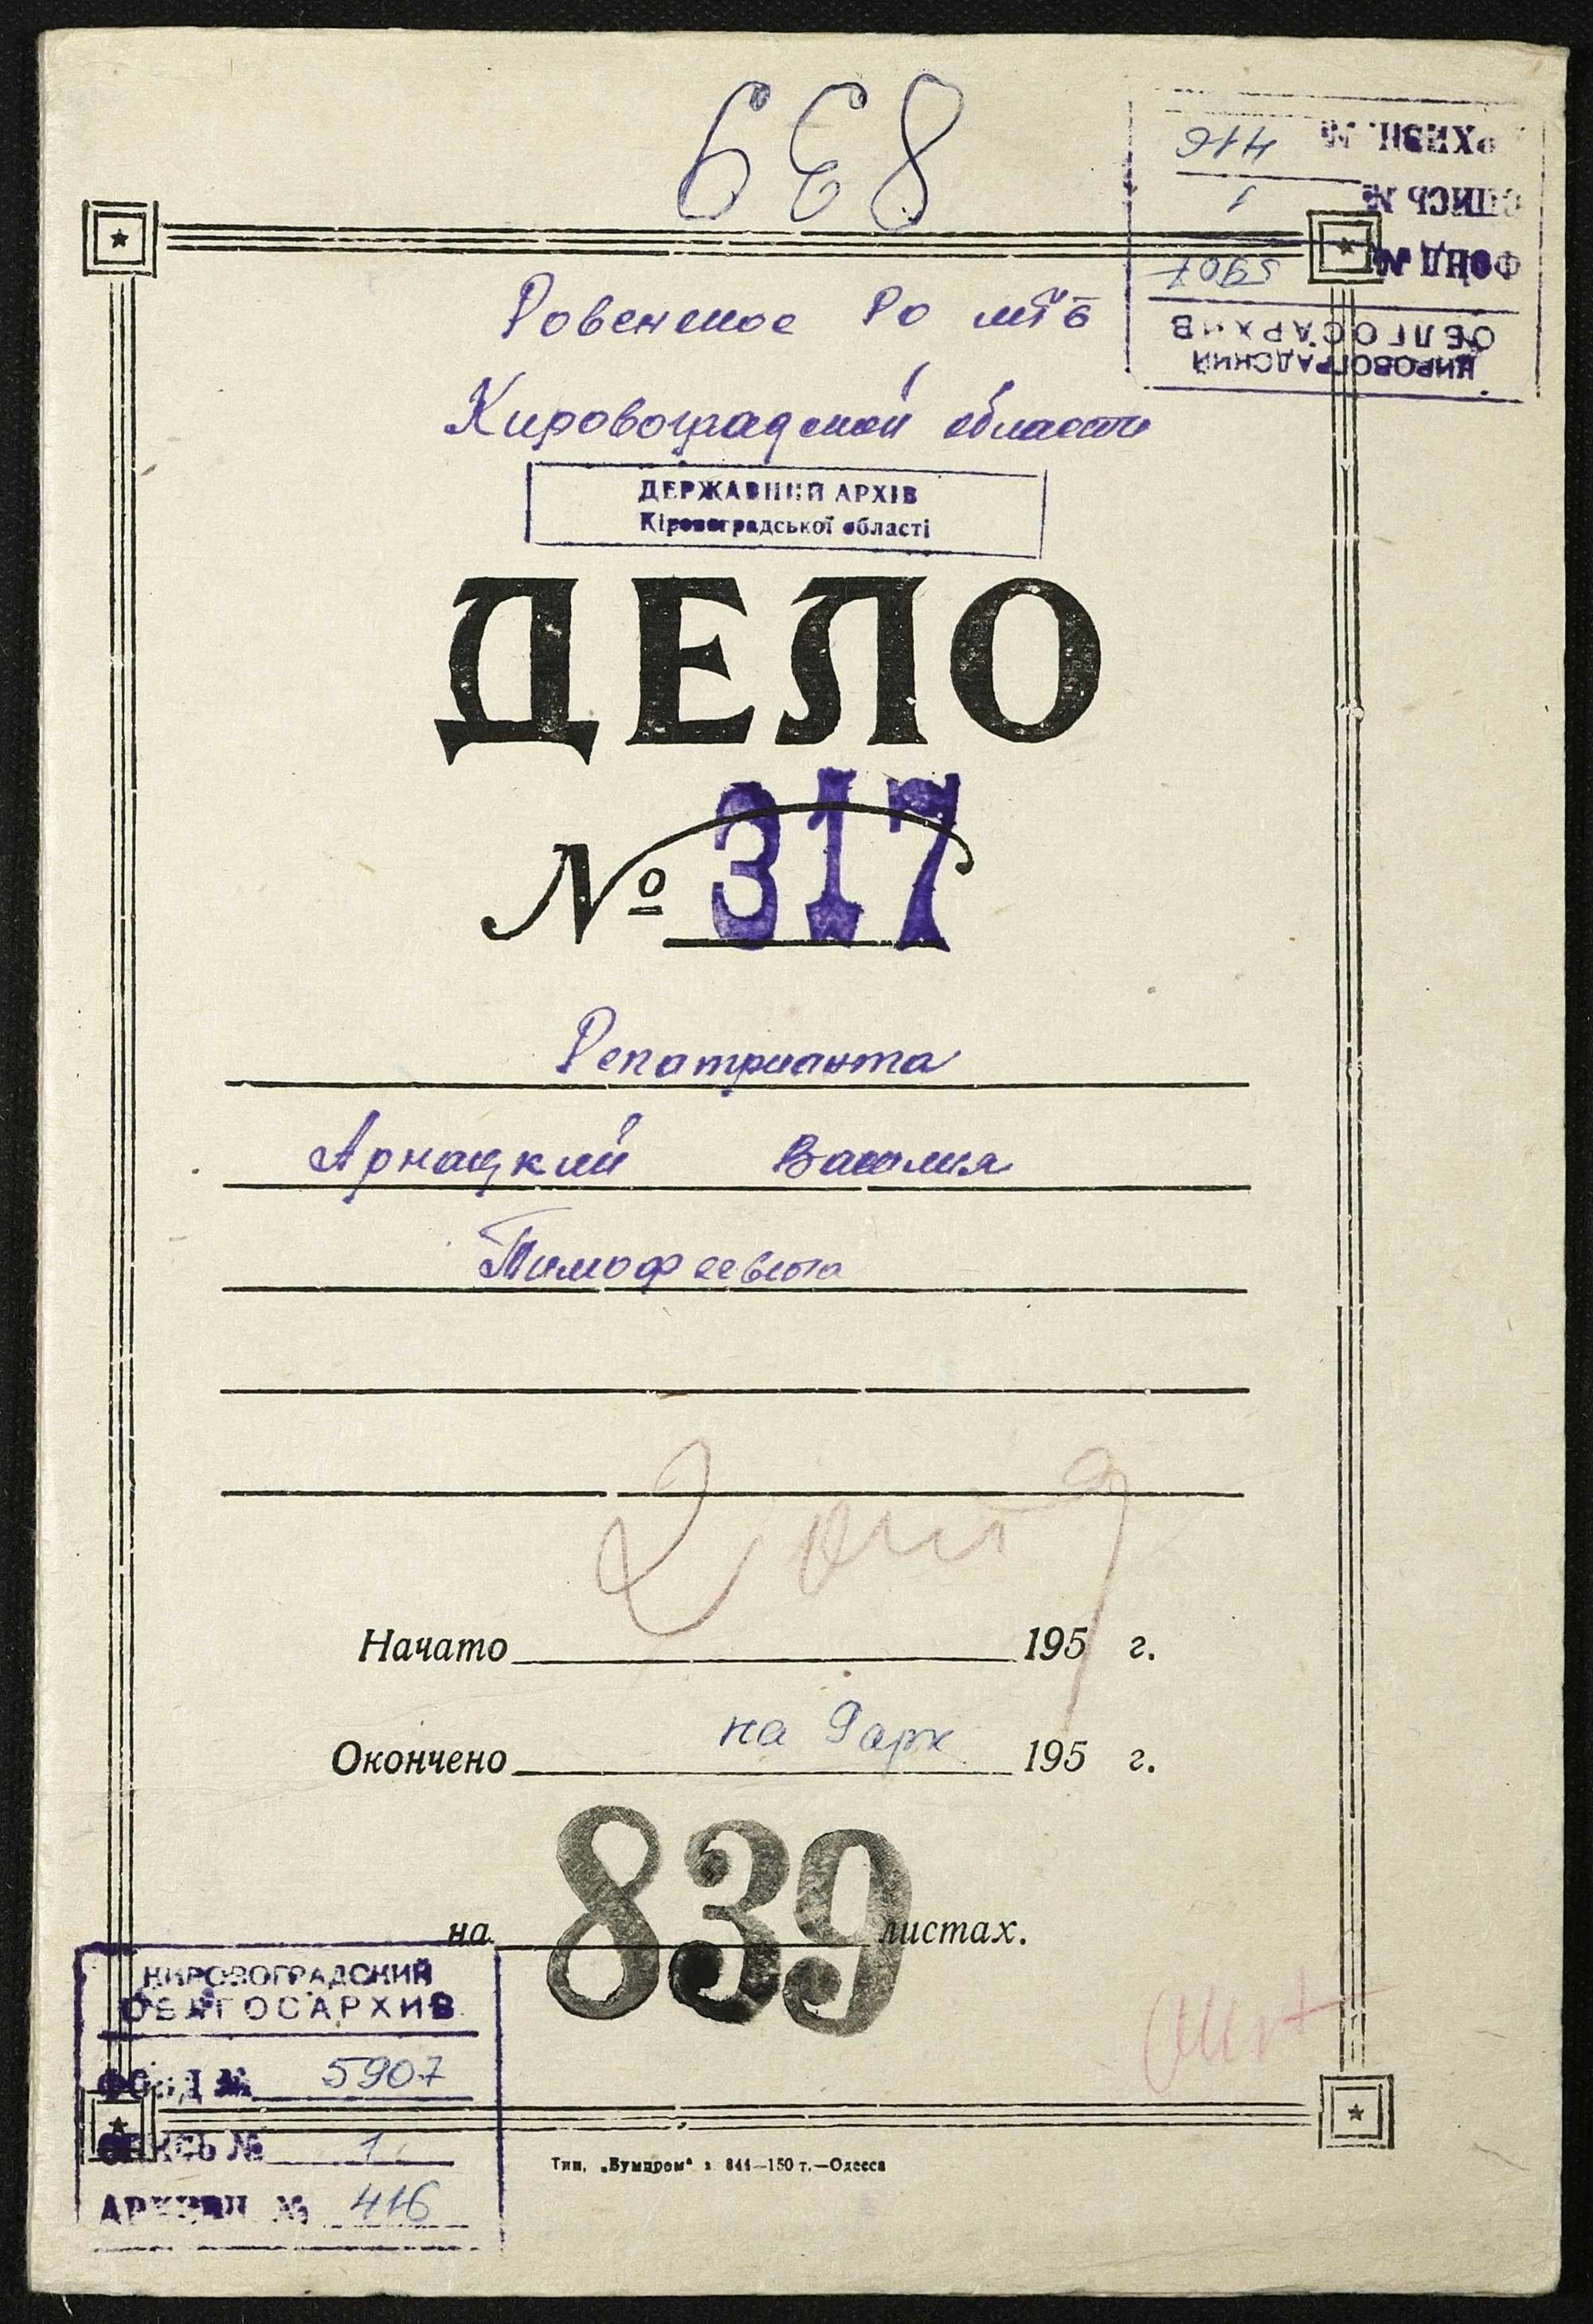 839
АРХИВН. № 416
ОПИСЬ № 1
ФОНД № 5907
КИРОВОГРАДСКИЙ
ОБЛГОСАРХИВ
Ровенское РО МГБ
Кировоградской области
ДЕРЖАВНИЙ АРХІВ
Кіровоградської області
ДЕЛО
№ 317
Репатрианта
Арнацкий Василия
Тимофеевича
Начато 195 г.
Окончено на 9 арк 195 г.
на 839 листах.
КИРОВОГРАДСКИЙ
ОБЛГОСАРХИВ
ФОНД № 5907
ОПИСЬ № 1
АРХИВН. № 416
Тип. „Бумпром“ з. 844—150 т.—Одесса